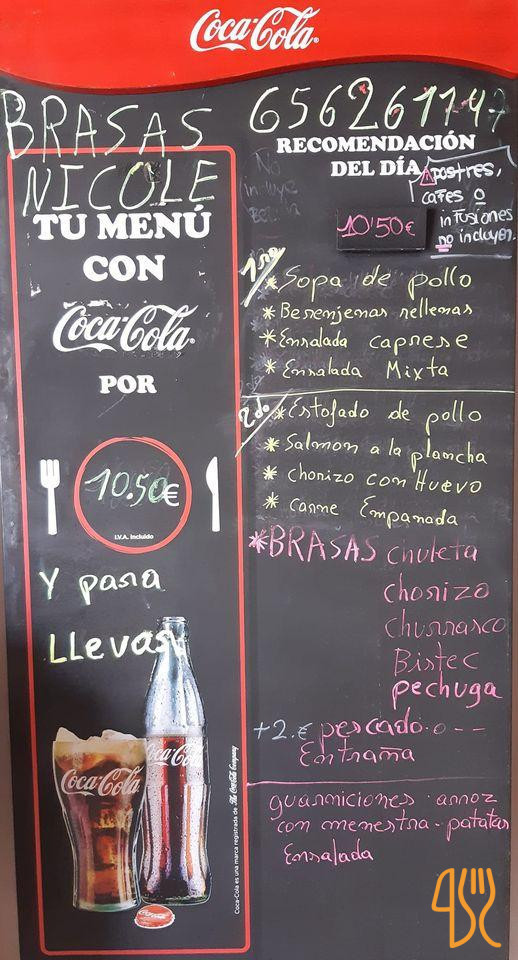 Coca-Cola
BRASAS
NICOLE
TU MENÚ
CON
Coca-Cola
POR
10.50€
I.V.A. Incluido
Y para
LLevar
Coca-Cola
Coca-Cola
Coca-Cola es una marca registrada de The Coca-Cola Company
656261147
RECOMENDACIÓN
DEL DÍA
postres,
cafes o
infusiones
no incluyen.
No
incluye
10'50€
1ro
* Sopa de pollo
* Berenjenas rellenas
* Ensalada caprese
* Ensalada Mixta
2do
* Estofado de pollo
* Salmon a la plancha
* chorizo con Huevo
* carne Empanada
* BRASAS chuleta
chorizo
churrasco
Bistec
pechuga
+2.€ pescado.o --
Entraña
guarniciones. arroz
con menestra - patatas
Ensalada